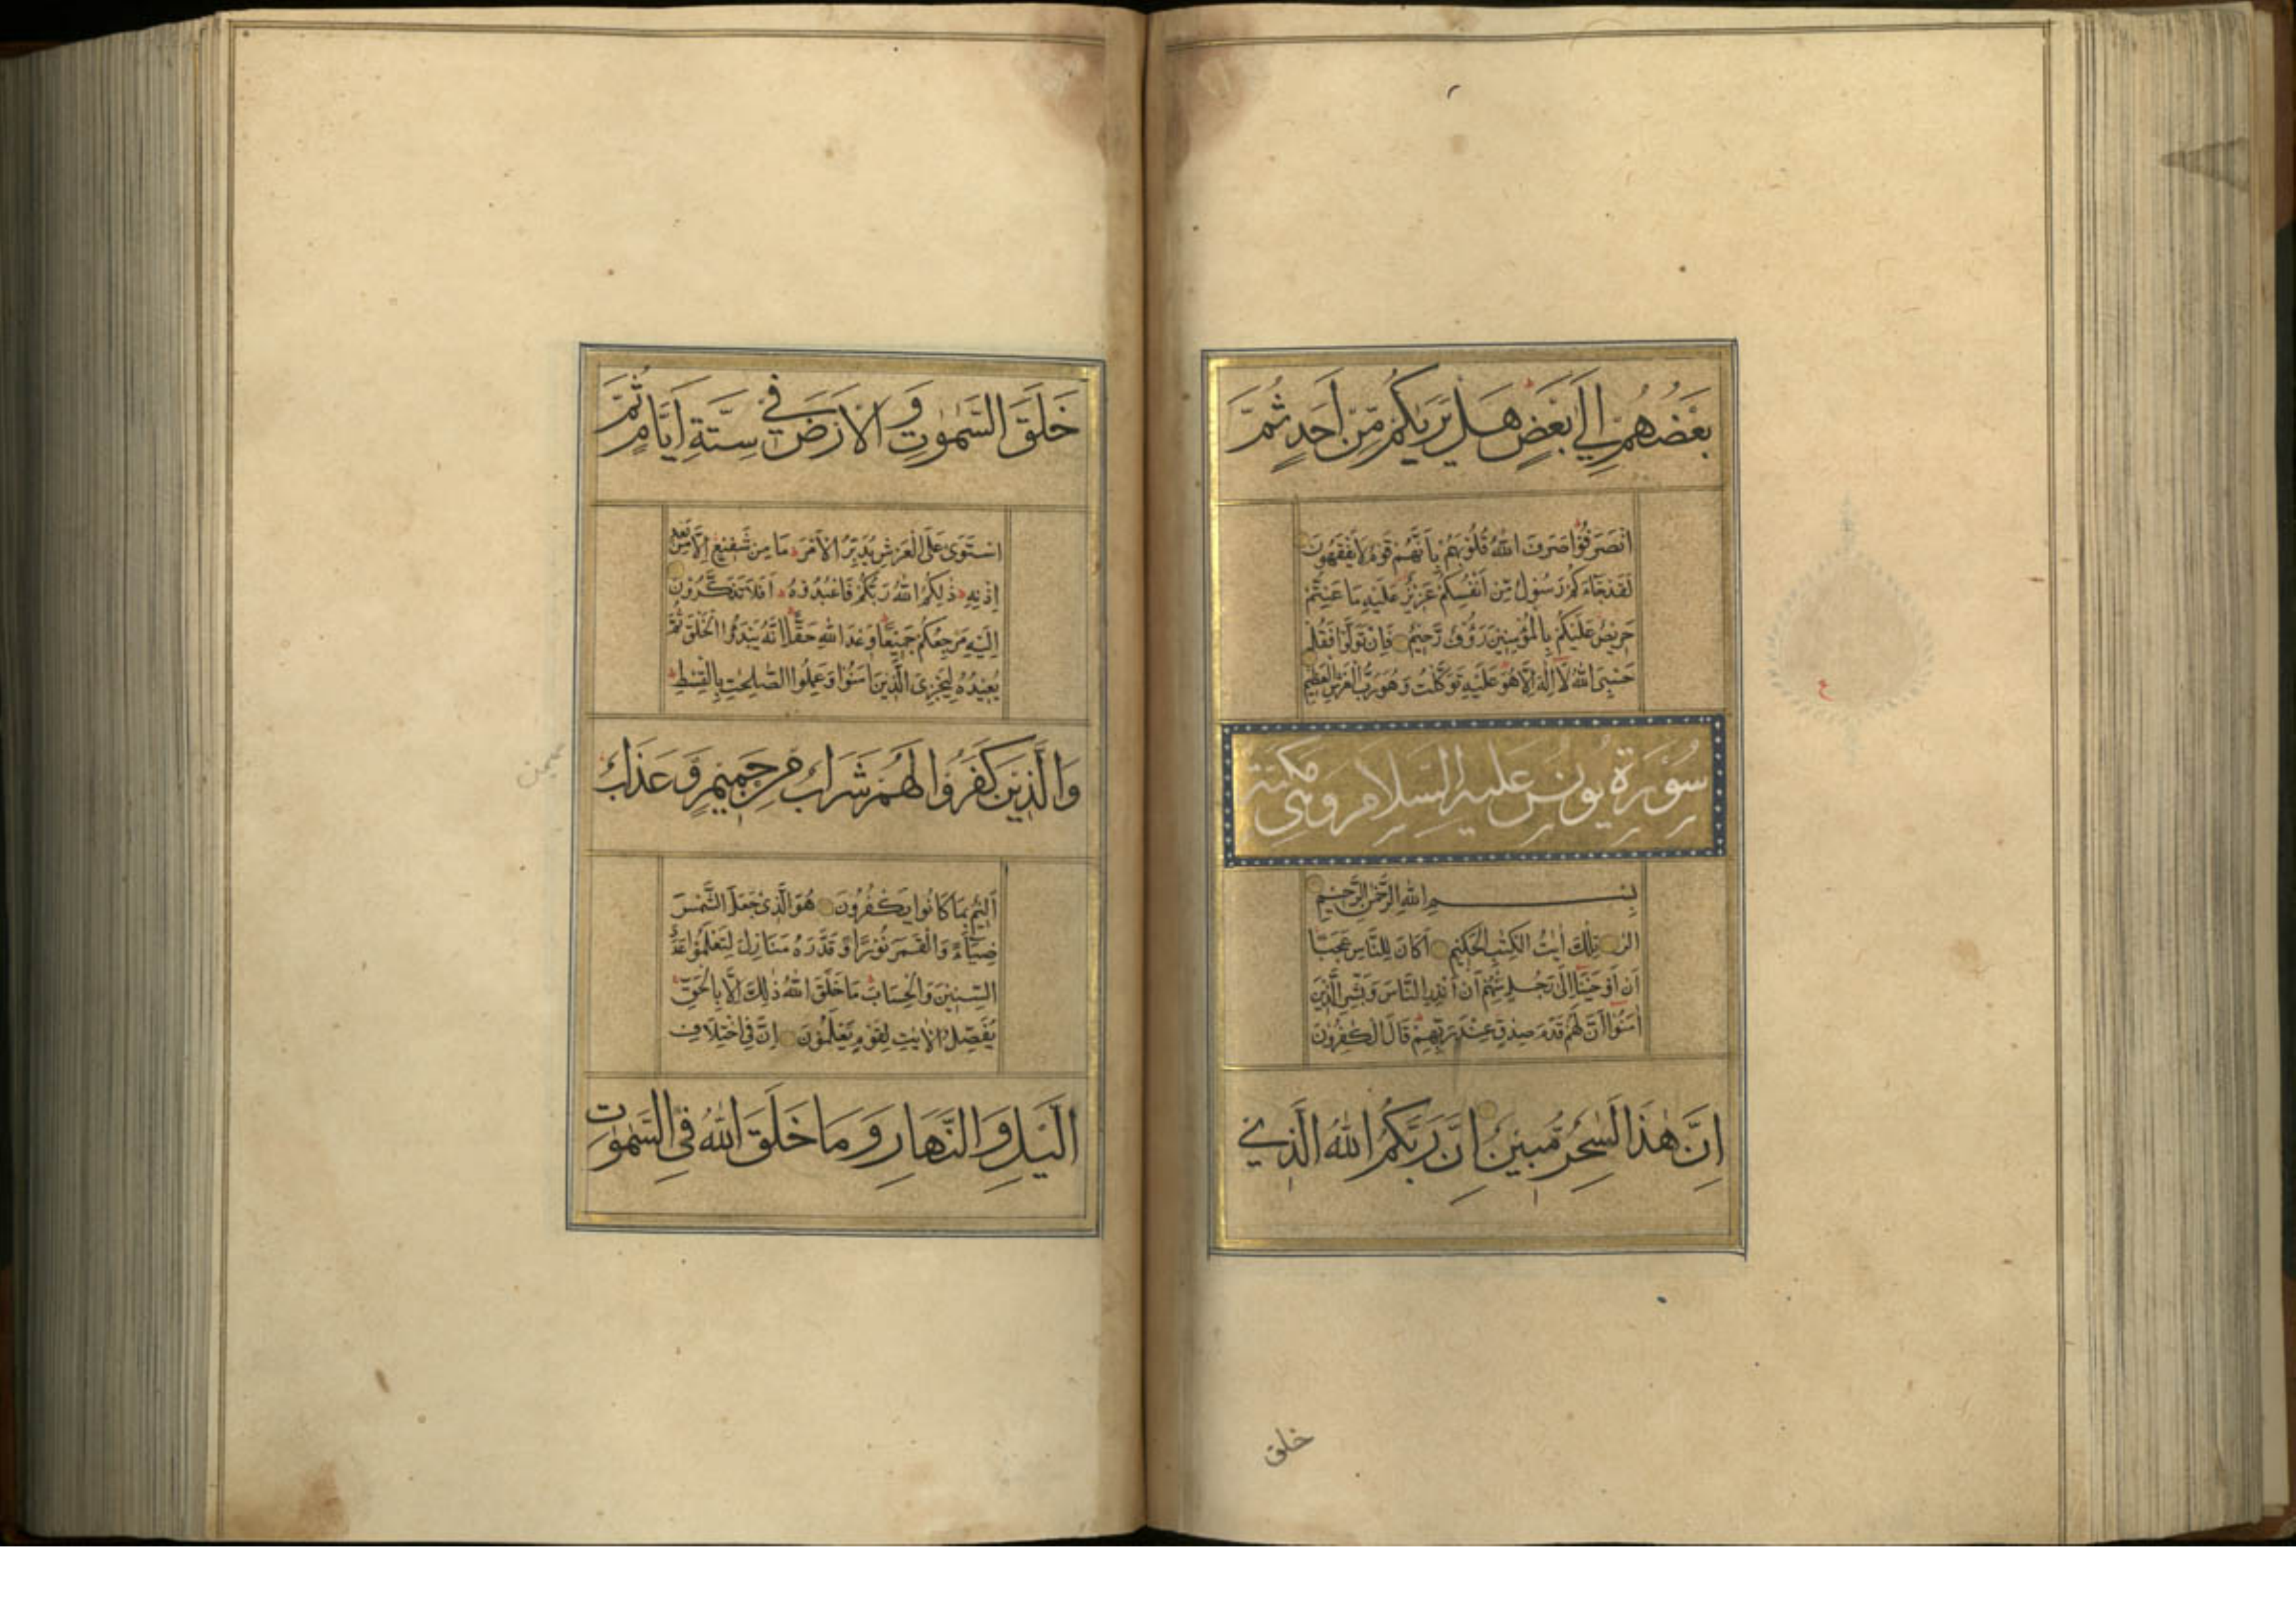 بَعْضُهُمْ إِلَىٰ بَعْضٍ هَلْ يَرٰىكُمْ مِّنْ أَحَدٍ ثُمَّ
انْصَرَفُوْا صَرَفَ اللهُ قُلُوْبَهُمْ بِأَنَّهُمْ قَوْمٌ لَا يَفْقَهُوْنَ
لَقَدْ جَآءَكُمْ رَسُوْلٌ مِّنْ أَنْفُسِكُمْ عَزِيْزٌ عَلَيْهِ مَا عَنِتُّمْ
حَرِيْصٌ عَلَيْكُمْ بِالْمُؤْمِنِيْنَ رَؤُفٌ رَّحِيْمٌ فَإِنْ تَوَلَّوْا فَقُلْ
حَسْبِيَ اللهُ لَا إِلٰهَ إِلَّا هُوَ عَلَيْهِ تَوَكَّلْتُ وَهُوَ رَبُّ الْعَرْشِ الْعَظِيْمِ
سُوْرَة يُونس عليه السلام وهي مكية
بِسْمِ اللهِ الرَّحْمٰنِ الرَّحِيْمِ
الٓرٰ تِلْكَ اٰيٰتُ الْكِتٰبِ الْحَكِيْمِ أَكَانَ لِلنَّاسِ عَجَبًا
أَنْ أَوْحَيْنَا إِلَىٰ رَجُلٍ مِّنْهُمْ أَنْ أَنْذِرِ النَّاسَ وَبَشِّرِ الَّذِيْنَ
اٰمَنُوْا أَنَّ لَهُمْ قَدَمَ صِدْقٍ عِنْدَ رَبِّهِمْ قَالَ الْكٰفِرُوْنَ
إِنَّ هٰذَا لَسٰحِرٌ مُّبِيْنٌ إِنَّ رَبَّكُمُ اللهُ الَّذِيْ
خلق
خَلَقَ السَّمٰوٰتِ وَالْأَرْضَ فِيْ سِتَّةِ أَيَّامٍ ثُمَّ
اسْتَوٰى عَلَى الْعَرْشِ يُدَبِّرُ الْأَمْرَ مَا مِنْ شَفِيْعٍ إِلَّا مِنْ بَعْدِ
إِذْنِهِ ذٰلِكُمُ اللهُ رَبُّكُمْ فَاعْبُدُوْهُ أَفَلَا تَذَكَّرُوْنَ
إِلَيْهِ مَرْجِعُكُمْ جَمِيْعًا وَعْدَ اللهِ حَقًّا إِنَّهُ يَبْدَؤُا الْخَلْقَ ثُمَّ
يُعِيْدُهُ لِيَجْزِيَ الَّذِيْنَ اٰمَنُوْا وَعَمِلُوا الصّٰلِحٰتِ بِالْقِسْطِ
وَالَّذِيْنَ كَفَرُوْا لَهُمْ شَرَابٌ مِنْ حَمِيْمٍ وَّعَذَابٌ
أَلِيْمٌ بِمَا كَانُوْا يَكْفُرُوْنَ هُوَ الَّذِيْ جَعَلَ الشَّمْسَ
ضِيَآءً وَالْقَمَرَ نُوْرًا وَقَدَّرَهُ مَنَازِلَ لِتَعْلَمُوْا عَدَدَ
السِّنِيْنَ وَالْحِسَابَ مَا خَلَقَ اللهُ ذٰلِكَ إِلَّا بِالْحَقِّ
يُفَصِّلُ الْاٰيٰتِ لِقَوْمٍ يَّعْلَمُوْنَ إِنَّ فِي اخْتِلَافِ
الَّيْلِ وَالنَّهَارِ وَمَا خَلَقَ اللهُ فِي السَّمٰوٰتِ